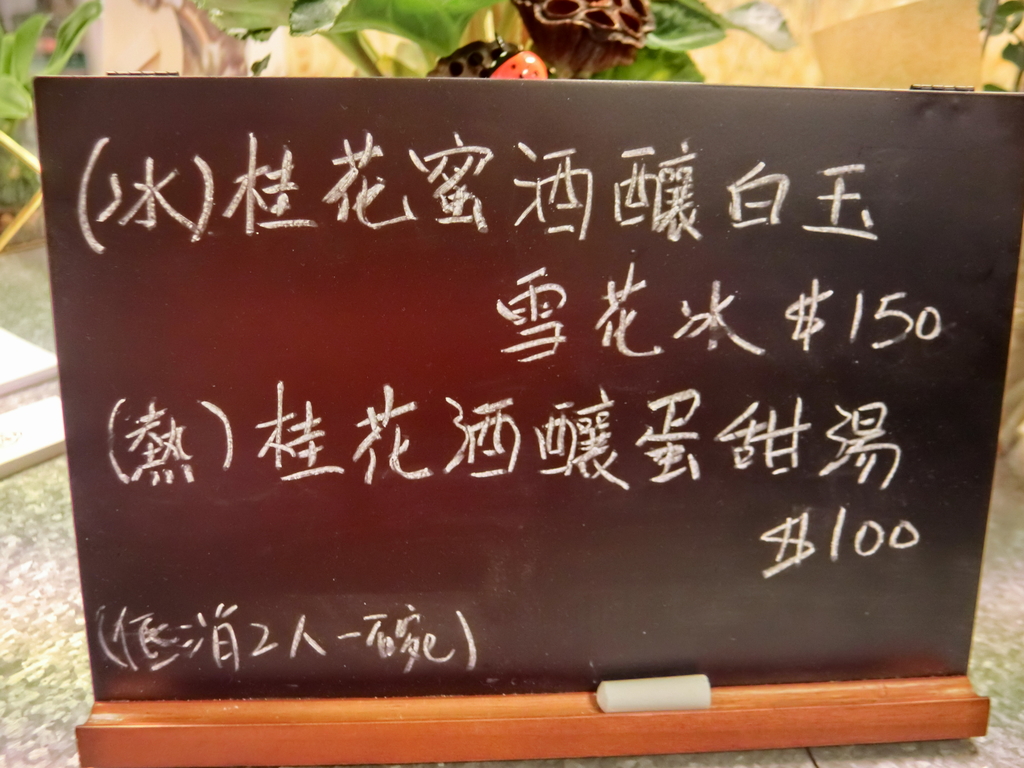 (冰)桂花蜜酒釀白玉
雪花冰 $150
(熱)桂花酒釀蛋甜湯
$100
(低消2人一碗)